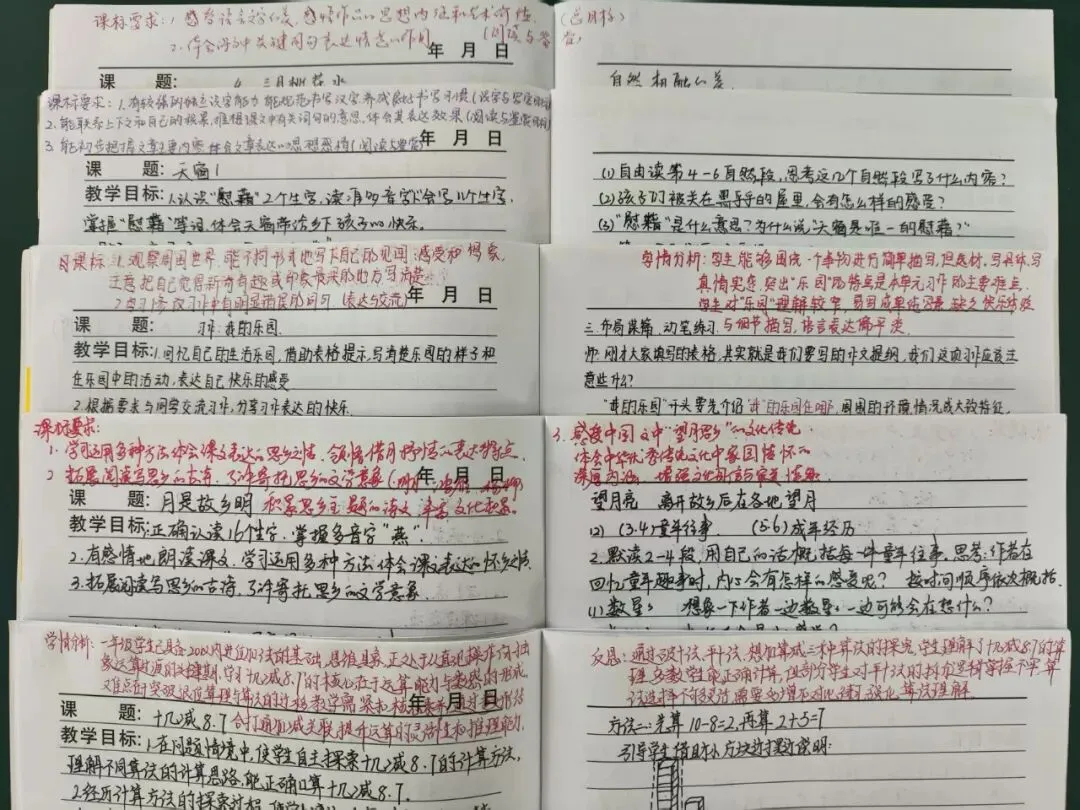 课标要求：1.感受语言文字的美、感悟作品的思想内涵和艺术价值。
（阅读与鉴
2.体会诗中关键词句表达情意的作用
年 月 日
课 题： 三月桃花水
（总目标）
自然相融之美.
课标要求：1.有较强的独立识字能力
2.能联系上下文和自己的积累，推想课文中有关词句的意思，体会其表达效果（阅读与鉴赏
3.能初步把握文章主要内容 体会文章表达的思想感情（阅读与鉴赏）
年 月 日
课 题： 天窗1
教学目标：1.认识“慰藉”2个生字，读准多音字 会写 个生字，
掌握“慰藉”等词，体会天窗带给乡下孩子的快乐.
(1)自由读第4-6自然段，思考这几个自然段写了什么内容？
(2)孩子们被关在黑乎乎的屋里，会有怎么样的感受？
(3)“慰藉”是什么意思？为什么说“天窗是唯一的慰藉？”
1.观察周围世界，能不拘形式地写下自己的见闻、感受和想象，
注意把自己觉得新奇有趣或印象最深的地方写清楚
2.学习修改习作中有明显错误的词句（表达与交流）
年 月 日
课 题： 习作：我的乐园
教学目标：1.回忆自己的生活乐园，借助表格提示，写清楚乐园的样子和
在乐园中的活动，表达自己快乐的感受
2.根据要求与同学交流习作，分享习作表达的快乐.
学情分析：学生能够围绕一个事物进行简单描写，但选材、写具体、写
真情实感，突出“乐园”的特点是本单元习作的主要难点.
学生对“乐园”理解较窄，
三.布局谋篇，动笔练习. 与细节描写，语言表达偏平淡.
师：刚才大家填写的表格，其实就是我们要写的作文提纲，我们这项习作应该注
意些什么？
“我的乐园”开头要先介绍“我”的乐园在哪，周围的环境情况或大致特征.
课标要求：
1.学习运用多种方法体会课文表达的思乡之情，领悟借月抒情的表达特点.
2.拓展阅读写思乡的古诗，了解寄托思乡的文学意象
年 月 日
课 题： 月是故乡明 积累思乡主题的诗文 丰富文化积累.
教学目标：正确认读16个生字，掌握多音字“燕”.
2.有感情地朗读课文，学习运用多种方法，体会课文表达的怀乡之情.
3.拓展阅读写思乡的古诗，了解寄托思乡的文学意象.
3.感受中国文中“望月思乡”的文化传统
体会中华优秀传统文化中家国情怀的
深厚内涵，增强文化自信与审美
望月亮 离开故乡后在各地望月
(2) (3.4)童年往事 (5.6)成年经历
2.默读2-4段，用自己的话概括每一件童年往事，思考：作者在
回忆童年趣事时，内心会有怎样的感受呢？ 按时间顺序依次概括.
(1)数星星 想象一下作者一边数星星，一边可能会在想什么？
学情分析：一年级学生已具备20以内进位加法的基础，思维具象，正处于从直观操作向抽
象运算过渡的关键期，学习十几减8、7的核心在于运算能力与数感的形成，
年 月 日
课 题： 十几减8、7
教学目标：1.在问题情境中，使学生自主探索十几减8、7的计算方法，
理解不同算法的计算思路，能正确口算十几减8、7.
2.经历计算方法的探索过程，
反思：通过破十法，平十法，想加算减三种算法的探究，学生理解了十几减8、7的算
理，多数能正确计算，但部分学生对平十法的拆分思材掌握不牢，算
方法二：先算10-8=2，再算2+5=7
引导学生借助小方块进行操作说明.